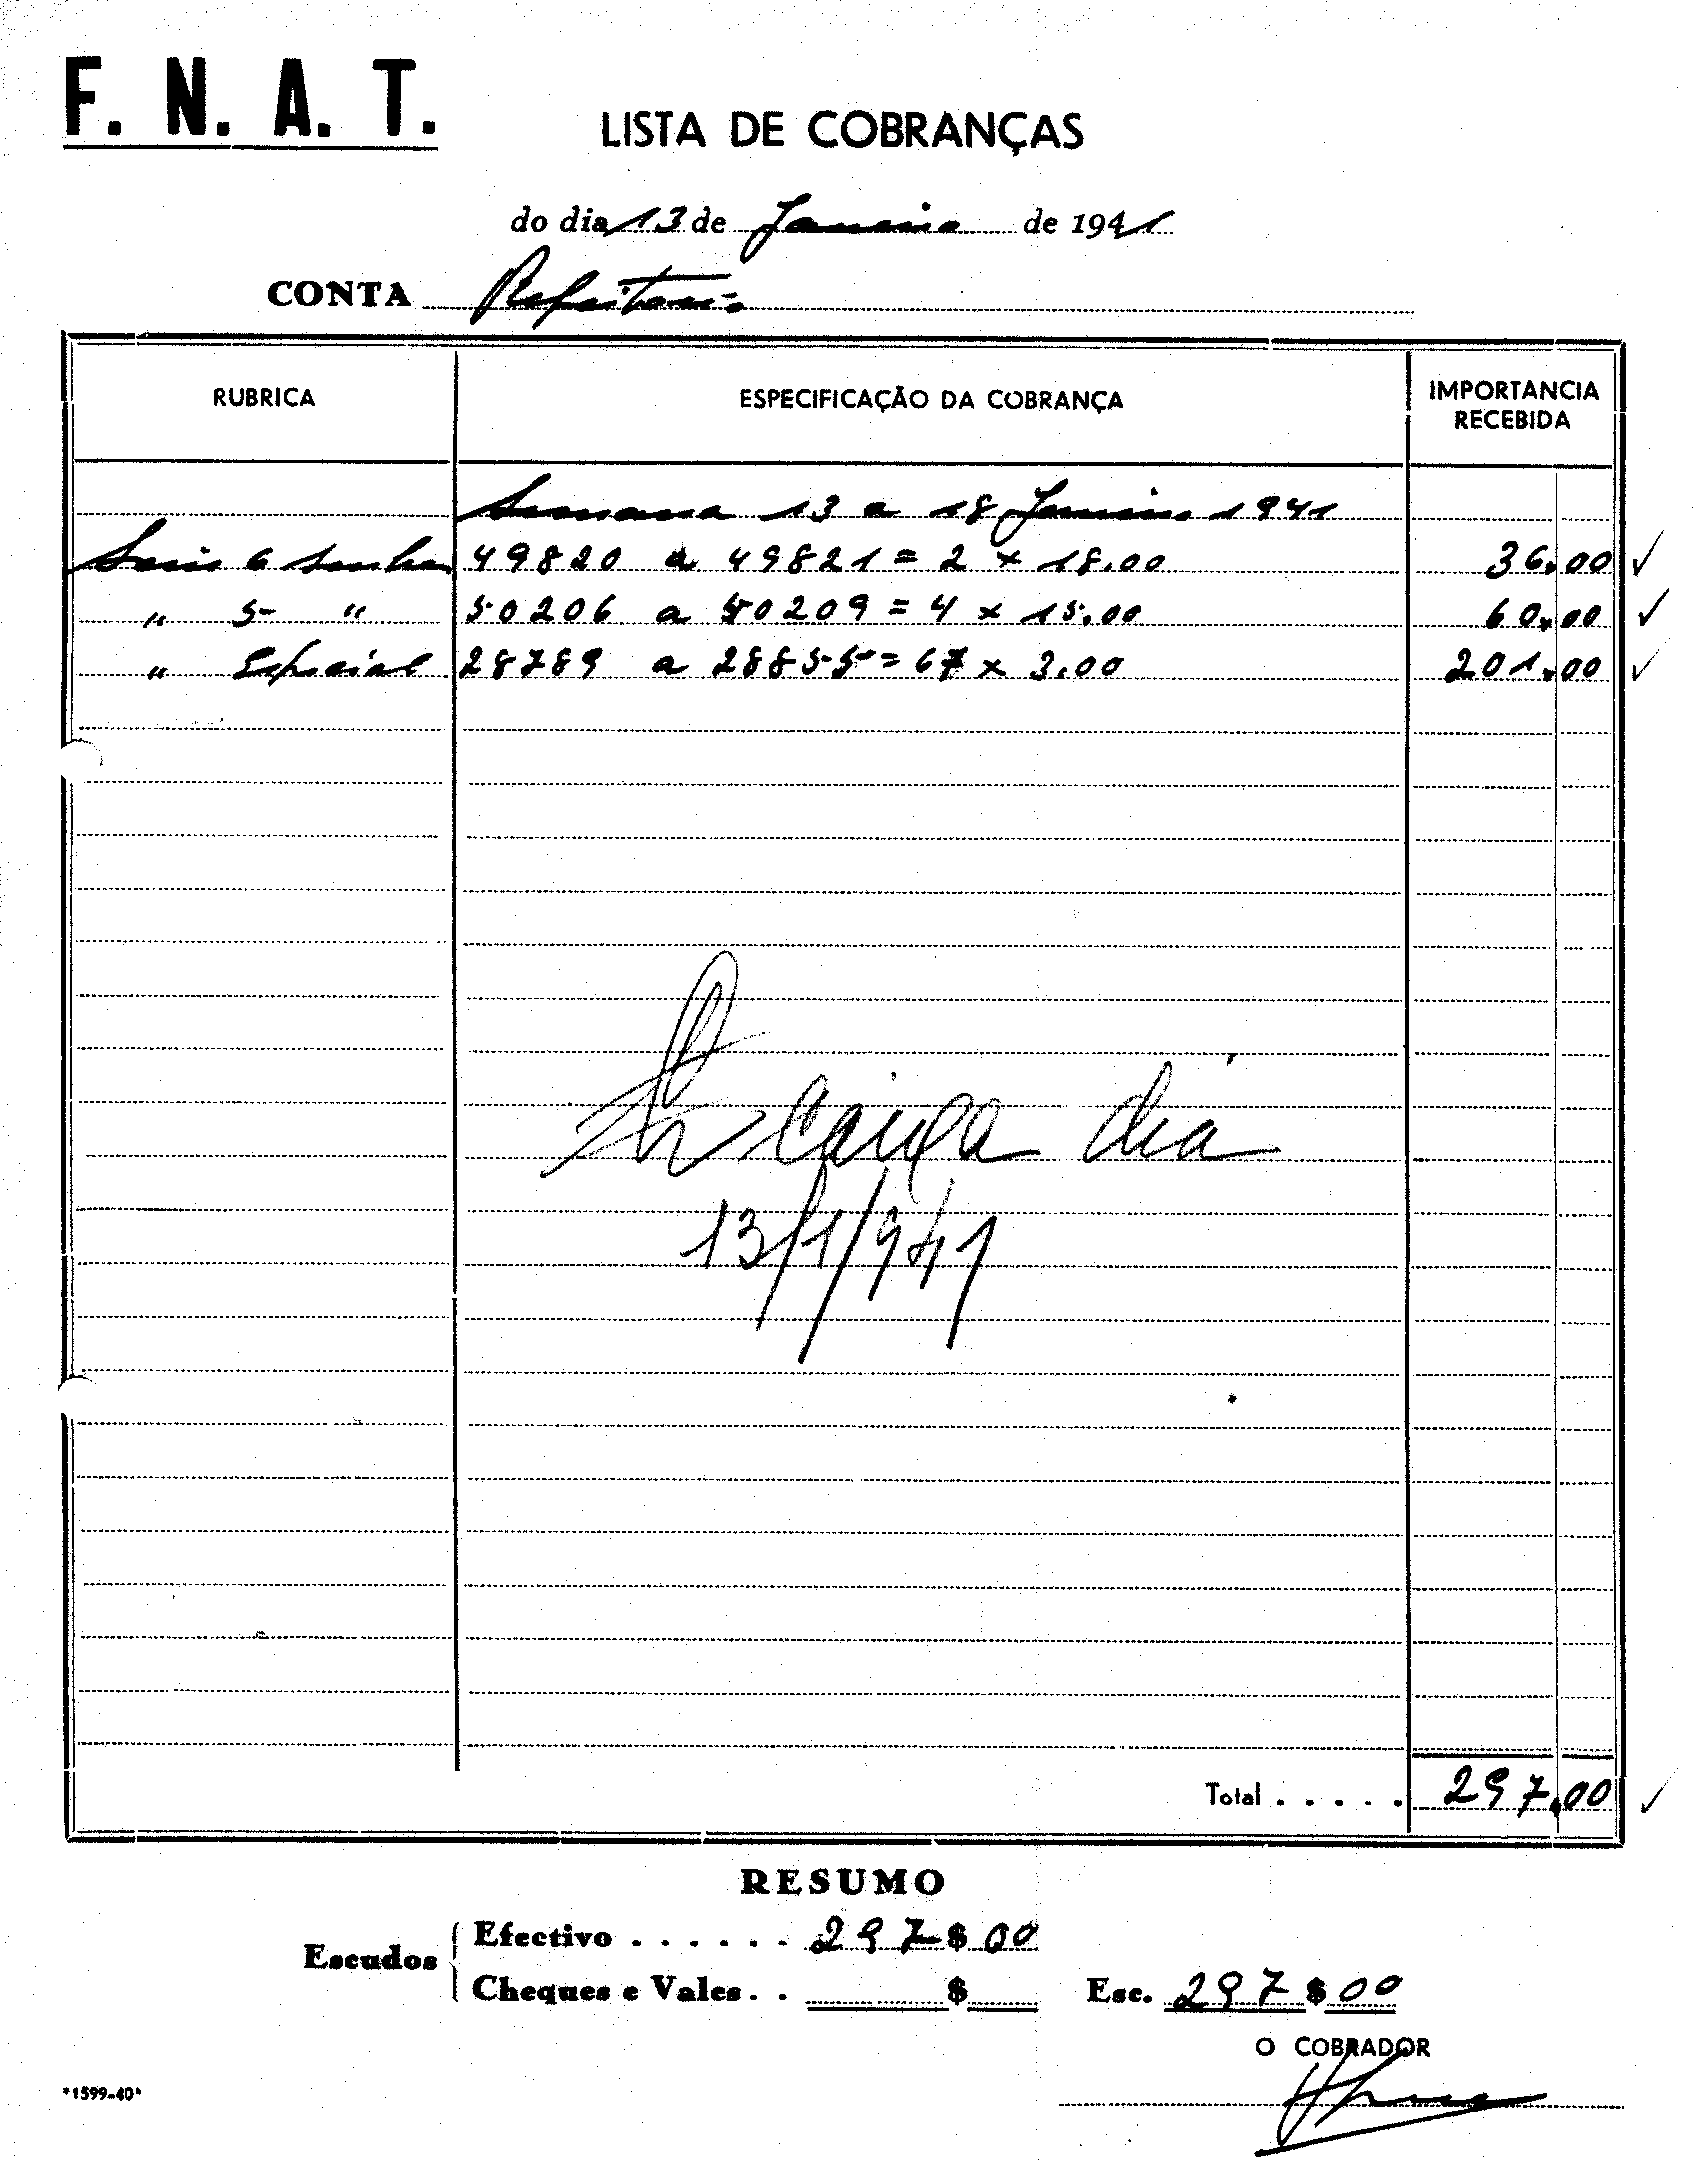 F. N. A. T.
LISTA DE COBRANÇAS
do dia 13 de Janeiro de 1941
CONTA Refeitorio
RUBRICA ESPECIFICAÇÃO DA COBRANÇA IMPORTANCIA RECEBIDA
Semana 13 a 18 Janeiro 1941
Serie 6 senhas 49820 a 49821 = 2 x 18.00 36.00
" 5 " 50206 a 50209 = 4 x 15.00 60.00
" Especial 28789 a 28855 = 67 x 3.00 201.00
caixa dia
13/1/941
Total . . . . . 297.00
RESUMO
Escudos
Efectivo . . . . . . 297$00
Cheques e Vales . . $
Esc. 297$00
O COBRADOR
*1599-40*